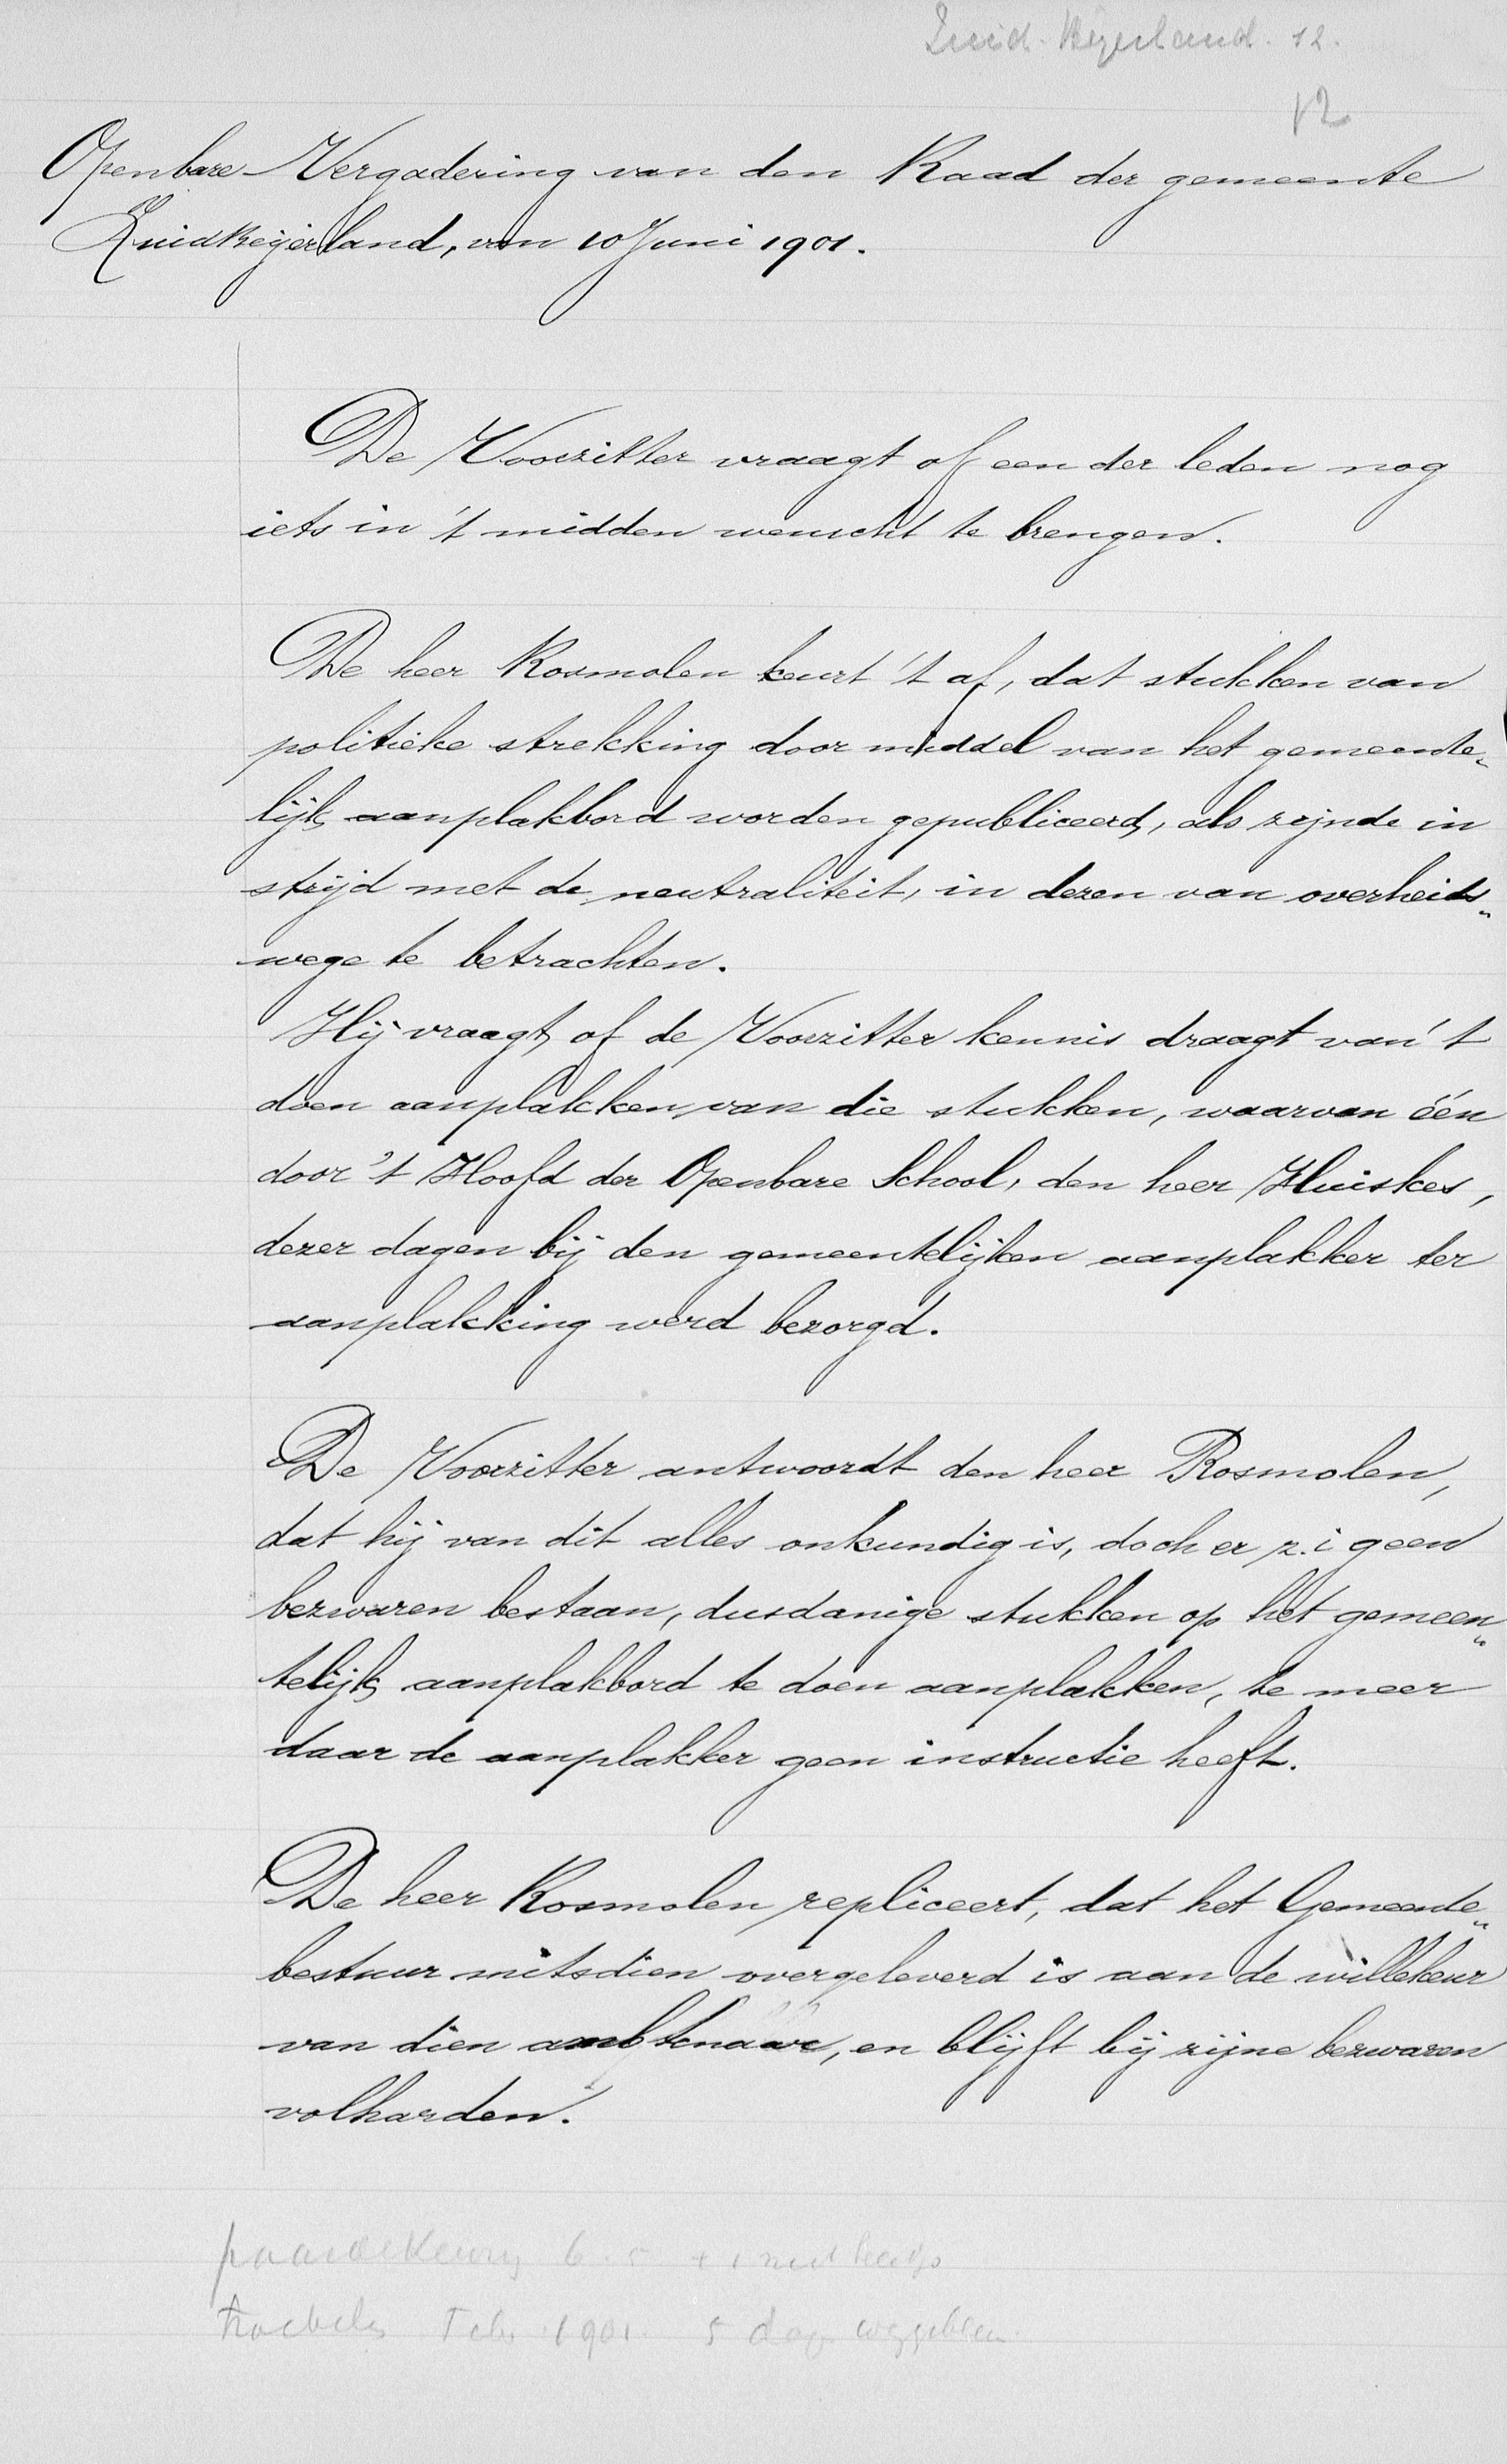 Zuid-Beyerland. 12.
12
Openbare Vergadering van den Raad der gemeente
ZuidBeijerland, van 10 Juni 1901.
De Voorzitter vraagt of een der leden nog
iets in 't midden wenscht te brengen.
De heer Rosmolen keurt 't af, dat stukken van
politieke strekking door middel van het gemeente„
lijk aanplakbord worden gepubliceerd, als zijnde in
strijd met de neutraliteit, in dezen van overheids„
wege te betrachten.
Hij vraagt of de Voorzitter kennis draagt van 't
doen aanplakken van die stukken, waarvan één
door 't Hoofd der Openbare School, den heer Huiskes,
dezer dagen bij den gemeentelijken aanplakker ter
aanplakking werd bezorgd.
De Voorzitter antwoordt den heer Rosmolen,
dat hij van dit alles onkundig is, doch er z.i geen
bezwaren bestaan, dusdanige stukken op het gemeen„
telijk aanplakbord te doen aanplakken, te meer
daar de aanplakker geen instructie heeft.
De heer Rosmolen repliceert, dat het Gemeente„
bestuur mitsdien overgeleverd is aan de willekeur
van dien ambtenaar, en blijft bij zijne bezwaren
volharden.
paardekeuring 6.5
Febr 1901. 5 dag